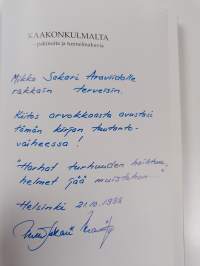 KAAKONKULMALTA
– pakinoita ja tunnelmakuvia
Mikko Sakari Araviidalle
rakkain terveisin.
Kiitos arvokkaasta avustasi
tämän kirjan tuotanto-
vaiheessa!
"Harhat turhuuden haihtuu,
helmet jää muistohon"
Helsinki 21.10.1994